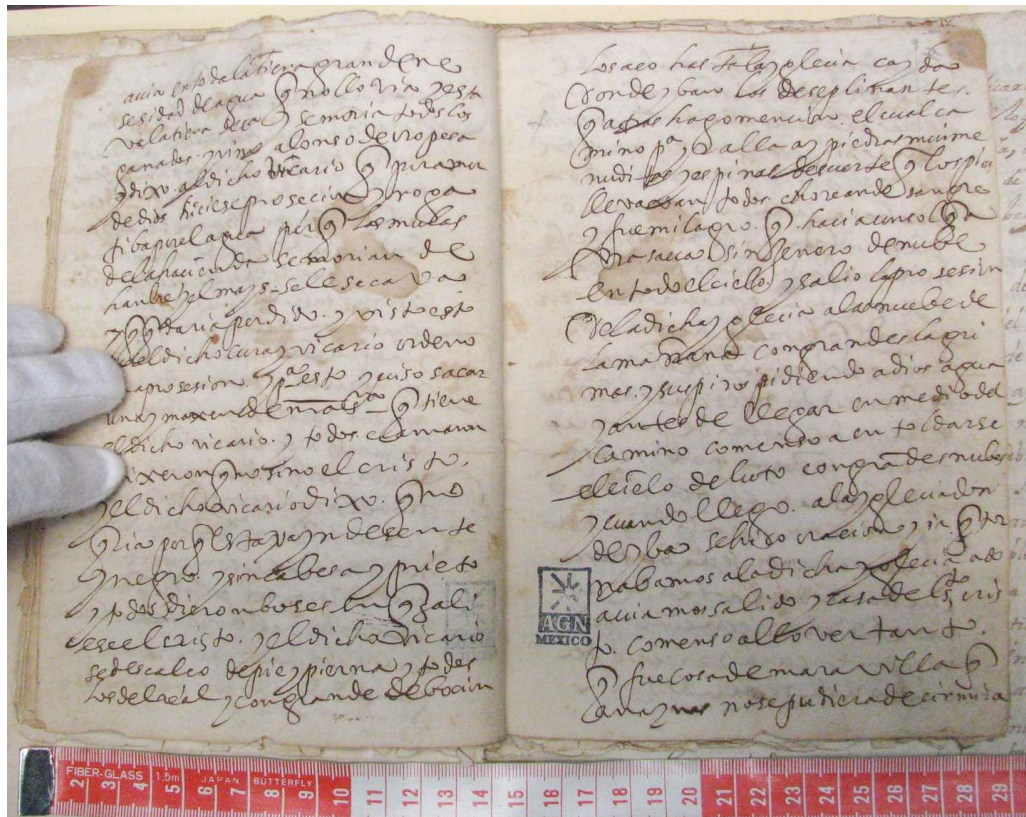 avia en toda la tierra grande ne
sesidad de agua q̃ no llovia y esta
va la tierra seca y se moria todos los
ganados. y vino alonso de oropesa
y dixo al dicho vicario q̃ por amor
de dios hiciese prosecion y roga
tiba por el agua porq̃ las mulas
de la hacienda se morian de
hanbre y el mays se lle secava
y q̃ perdido. y visto esto
el dicho cura y vicario ordeno
la prosesion y pa esto quiso sacar
una ymaxen de q̃ tiene
el dicho vicario. y todos clamaron
dixeron q̃ no sino el cristo.
y el dicho vicario dixo. q̃ no
q̃ria porq̃ estava yndesente
y negro y sin cabesa y prieto
y todos dieron boses en q̃ sali
ese el cristo. y el dicho vicario
se descalco de pie y pierna y todos
los del real y con grande debocion
lo saco hasta la yglecia cayda
donde yban los deseplinantes.
q̃ atras hago mencion. el cual ca
mino pa alla ay piedras mui me
nuditas y espinas de suerte q̃ los pies
llevaban todos choreando sangre
y fue milagro. q̃ hacia un sol q̃
sin genero de nube
en todo el cielo. y salio la prosesion
de la dicha yglecia a las nuebe de
la mañana con grandes lagri
mas. y suspiros pidiendo a dios agua
y antes de llegar en medio del
camino comenso a entoldarse
el cielo de luto con grãdes nubes
y cuando llego. a la yglecia don
de yba se hiso oracion y in q̃ tor
nabamos a la dicha yglecia a do
aviamos salido y casa del sto cris
to. comenso a llover tanto.
q̃ fue cosa de maravilla q̃
no se pudiera decir
FIBER-GLASS 1.5m JAPAN BUTTERFLY
2 3 4 5 6 7 8 9 10 11 12 13 14 15 16 17 18 19 20 21 22 23 24 25 26 27 28 29
AGN
MEXICO